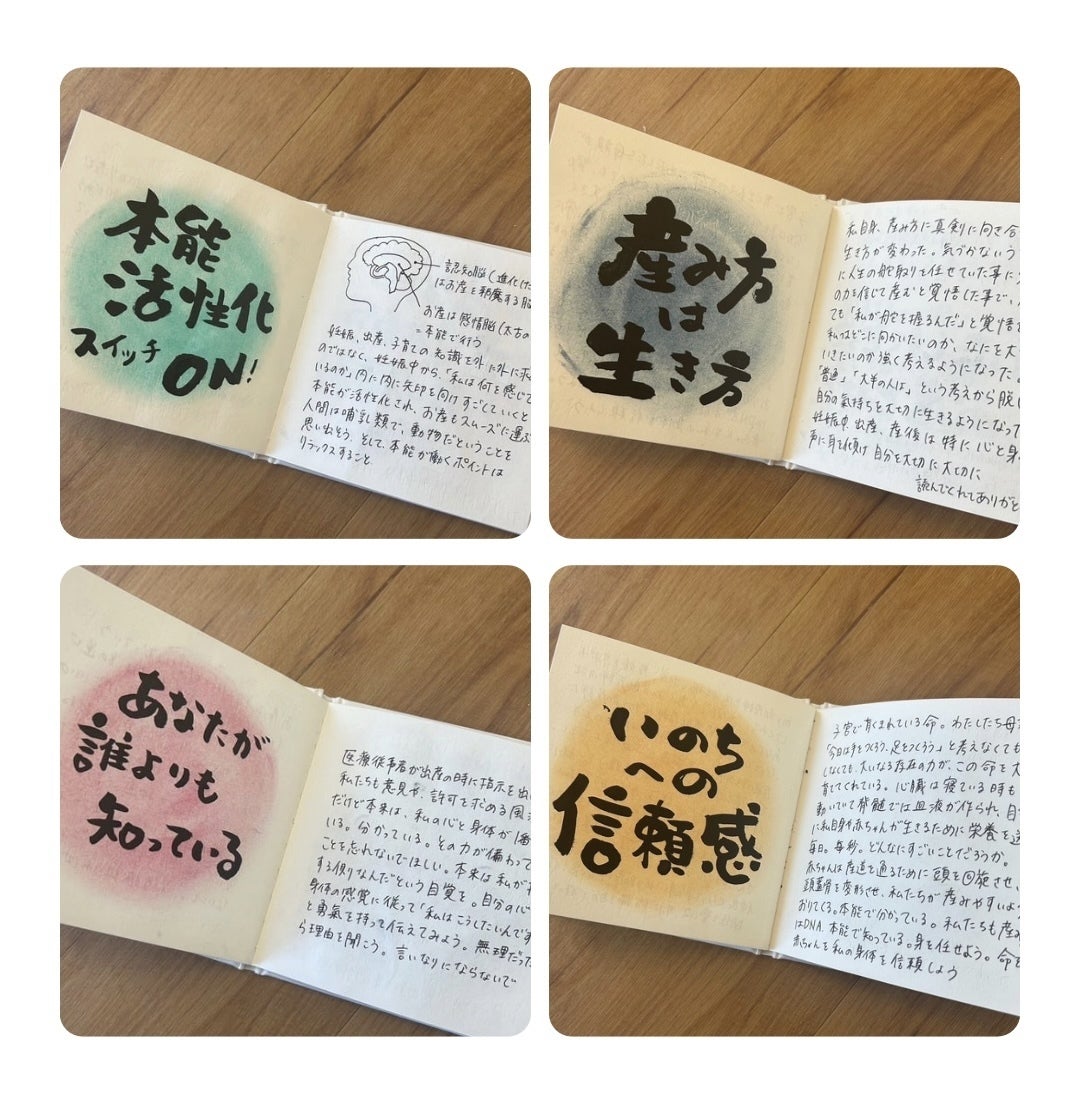 本能
活性化
スイッチ
ON!
認知脳(進化した
はお産を邪魔する脳
お産は感情脳(太古の
=本能で行う
妊娠、出産、子育ての知識を外に外に求
のではなく、妊娠中から、「私は何を感じて
いるのか」内に内に矢印を向けすごしていくと
本能が活性化され、お産もスムーズに運ぶ
人間は哺乳類で、動物だということを
思い出そう。そして、本能が働くポイントは
リラックスすること。
産み方
は
生き方
私自身、産み方に真剣に向き合
生き方が変わった。気づかないう
に人生の舵取りを任せていた事に
の力を信じて産むと覚悟した事で、
ても「私が舵を握るんだ」と覚悟
私はどこに向かいたいのか、なにを大
いきたいのか強く考えるようになった。
「普通」「大半の人は」という考えから脱
自分の気持ちを大切に生きるようになって
妊娠中、出産、産後は特に心と身
声に耳を傾け自分を大切に大切に
読んでくれてありがと
あなたが
誰よりも
知っている
医療従事者が出産の時に指示を出
私たちも意見や、許可を求める風
だけど本来は、私の心と身体が1番
いる。分かっている。その力が備わって
ことを忘れないでほしい。本来は私が
する側りなんだという自覚を。自分の心
身体の感覚に従って「私はこうしたいんです
と勇氣を持って伝えてみよう。無理だった
ら理由を聞こう。言いなりにならないで
いのち
への
信頼感
子宮で育くまれている命。わたしたち母
「今日は手をつくろう、足をつくろう」と考えなくても
しなくても、大いなる存在の力が、この命を大
育ててくれている。心臓は寝ている時も
動いていて脊髄では血液が作られ、自
に私自身や赤ちゃんが生きるために栄養を送
毎日。毎秒。どんなにすごいことだろうか。
赤ちゃんは産道を通るために頭を回旋させ、
頭蓋骨を変形させ、私たちが産みやすいよう
おりてくる。本能で分かっている。私たちも産み
はDNA、本能で知っている。身を任せよう。命を
赤ちゃんを私の身体を信頼しよう